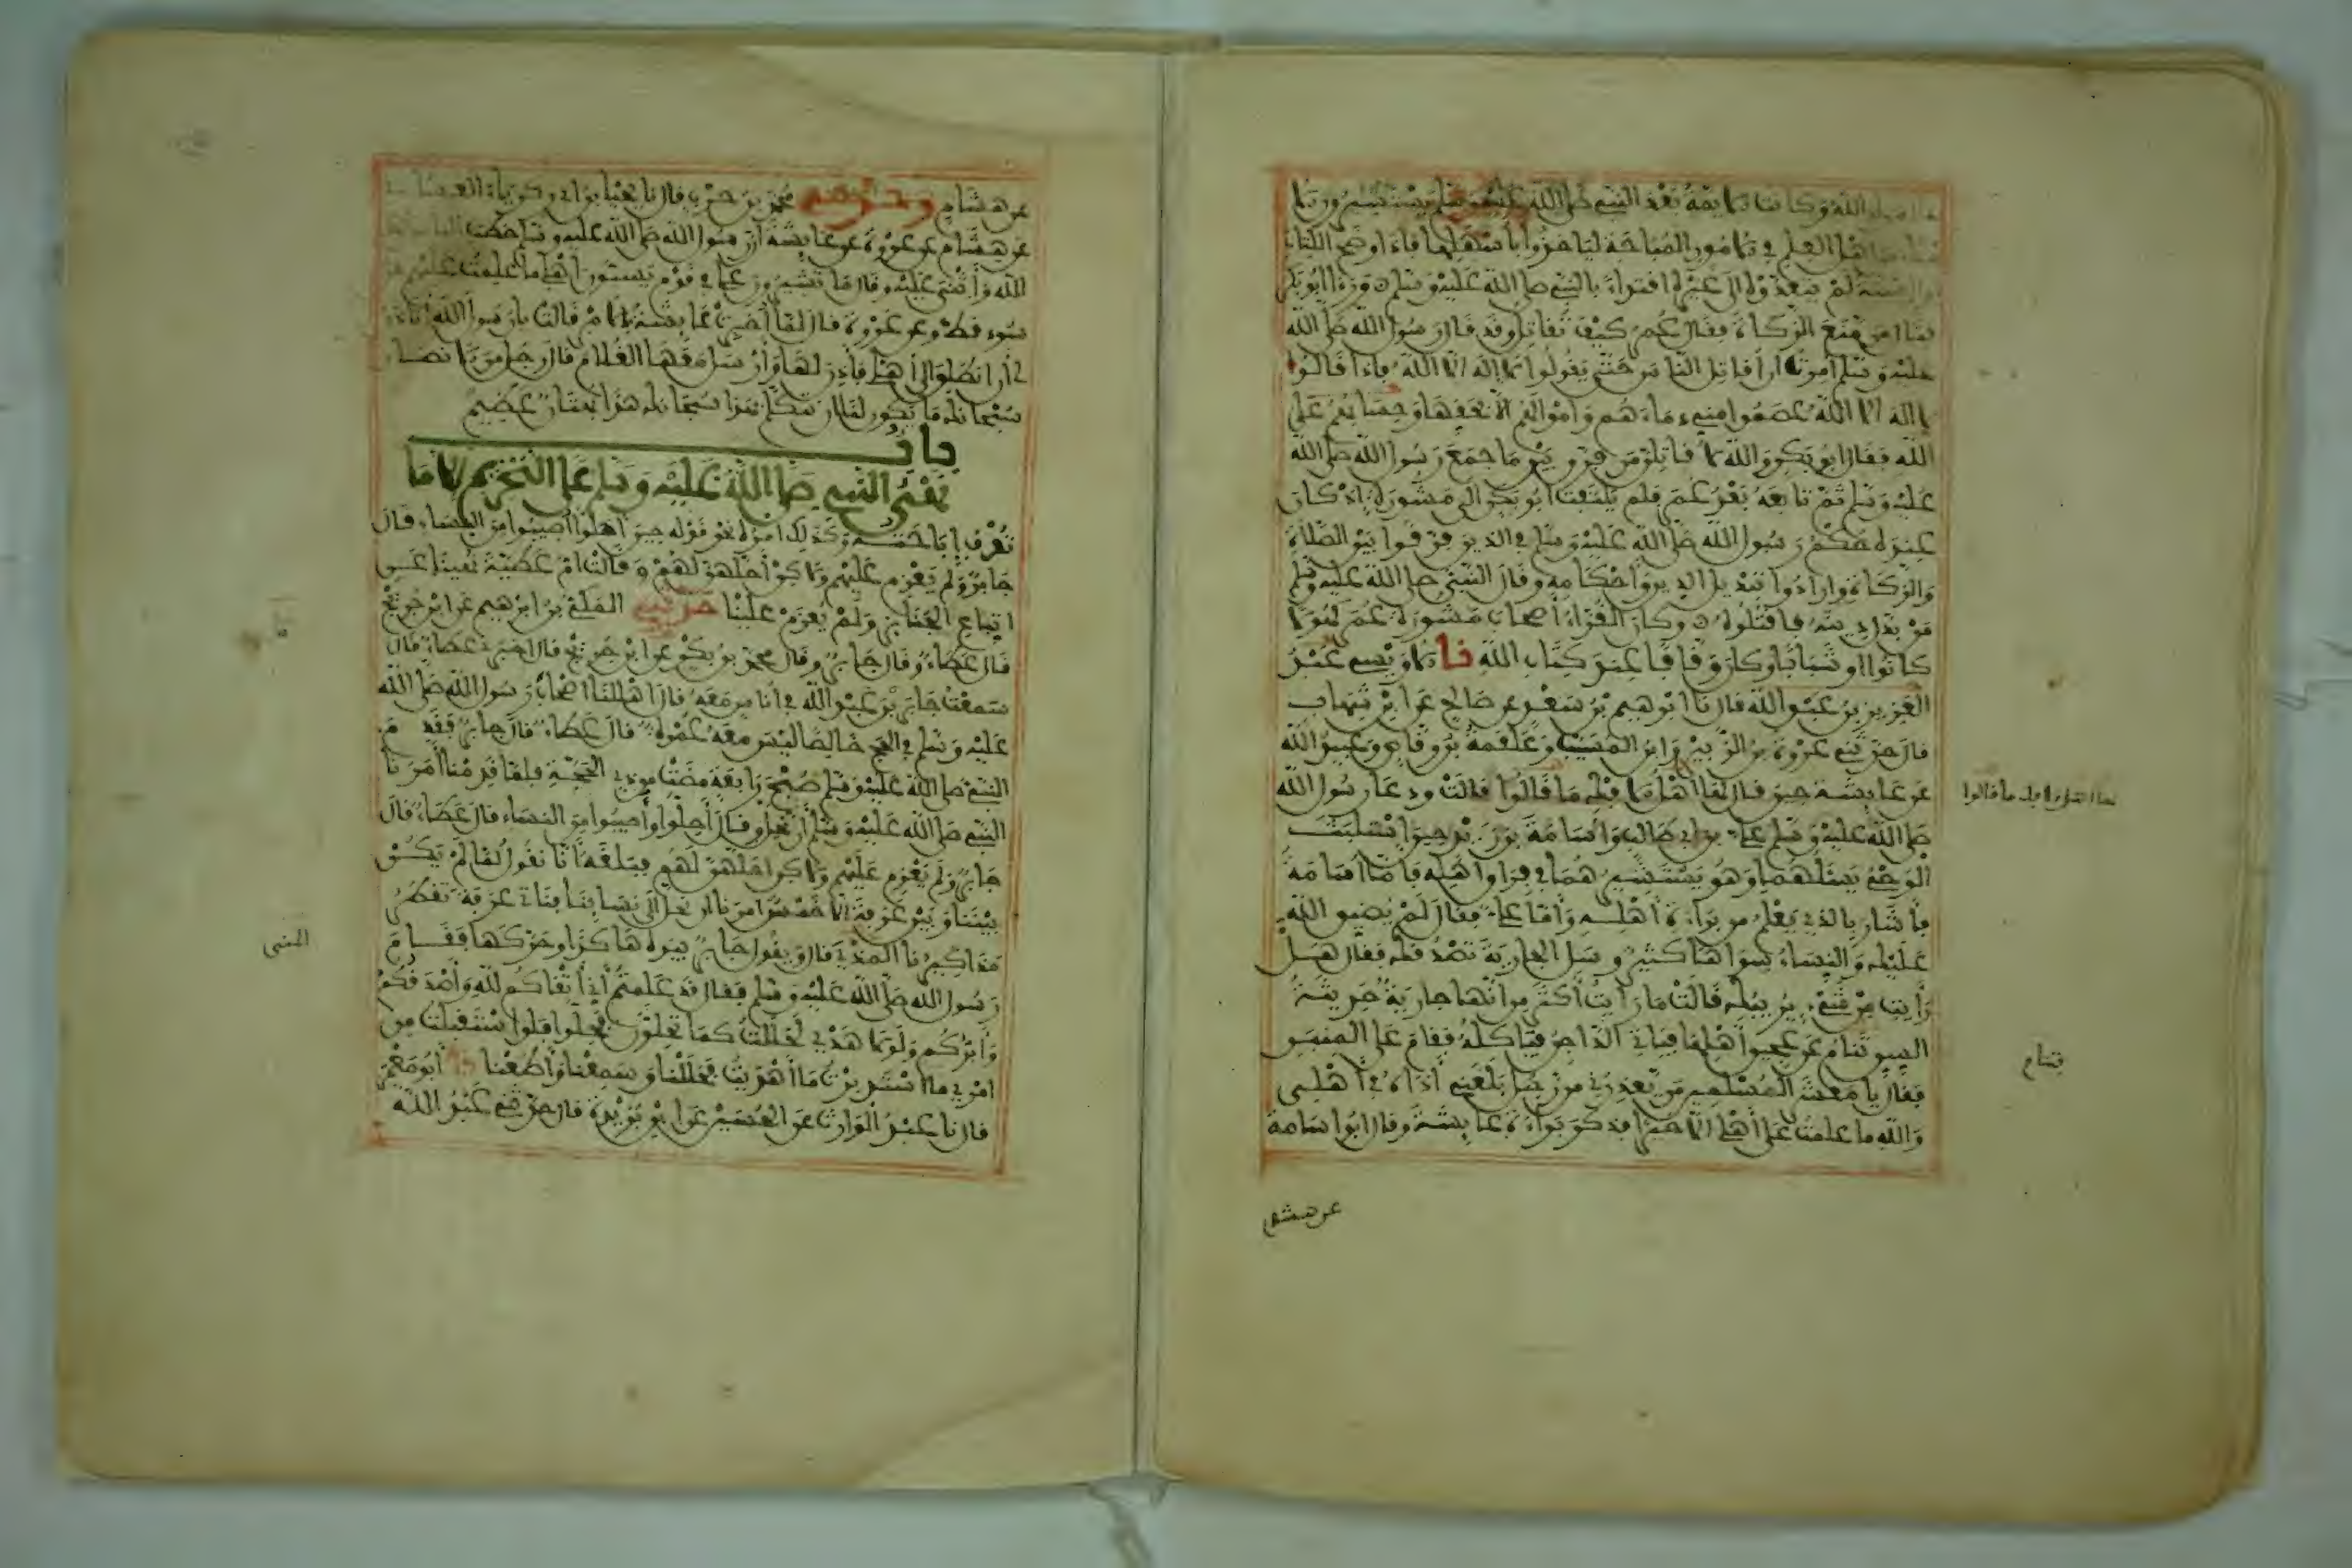 الله وكانت الأيمة بعد النبي صلى الله عليه وسلم يستشيرون الأ
أهل العلم في الأمور المباحة لياخذوا بأسهلها فإذا وضح الكتاب
والسنة لم يتعدوه إلى غيره اقتداء بالنبي صلى الله عليه وسلم ورءا ابو بكر
قتال من منع الزكاة فقال عمر كيف تقاتل وقد قال رسول الله صلى الله
عليه وسلم أمرت أن أقاتل الناس حتى يقولوا لا إله إلا الله فإذا قالوا
لا إله إلا الله عصموا مني دماءهم وأموالهم إلا بحقها وحسابهم على
الله فقال ابو بكر والله لأقاتلن من فرق بين ما جمع رسول الله صلى الله
عليه وسلم ثم تابعه بعد عمر فلم يلتفت أبو بكر إلى مشورة إذ كان
عنده حكم رسول الله صلى الله عليه وسلم في الذين فرقوا بين الصلاة
والزكاة وارادوا تبديل الدين وأحكامه وقال النبي صلى الله عليه وسلم
من بدل دينه فاقتلوه وكان القراء أصحاب مشورة عمر كهولا
كانوا او شبابا وكان وقافا عند كتاب الله نا الأويسي عبد
العزيز بن عبد الله قال نا ابرهيم بن سعد عن صالح عن ابن شهاب
قال حدثني عروة بن الزبير وابن المسيب وعلقمة بن وقاص وعبيد الله
عن عايشة حين قال لها أهل الإفك ما قالوا قالت ودعا رسول الله
صلى الله عليه وسلم علي بن أبي طالب وأسامة بن زيد حين استلبث
الوحي يسئلهما وهو يستشيرهما في فراق اهله فأما أسامة
فأشار بالذي يعلم من براءة أهله وأما علي فقال لم يضيق الله
عليك والنساء سواها كثير وسل الجارية تصدقك فقال هل
رأيت من شيء يريبك قالت ما رأيت أكثر من أنها جارية حديثة
السن تنام عن عجين أهلها فيأتي الداجن فيأكله فقام على المنبر
فقال يا معشر المسلمين من يعذرني من رجل بلغني أذاه في أهلي
والله ما علمت على أهلي إلا خيرا فذكر براءة عايشة وقال ابو اسامة
عن هشام
فتنام
عن هشام وحدثني محمد بن حرب قال نا يحيا بن أبي زكرياء الغساني
عن هشام عن عروة عن عايشة أن رسول الله صلى الله عليه وسلم خطب الناس
الله وأثنى عليه وقال ما تشيرون علي في قوم يسبون أهلي ما علمت عليهم من
سوء قط وعن عروة قال لما أخبرت عايشة بالأمر قالت يا رسول الله أتأذن
لي أن انطلق إلى أهلي فأذن لها وأرسل معها الغلام قال رجل من الأنصار
سبحانك ما يكون لنا أن نتكلم بهذا سبحانك هذا بهتان عظيم
باب
نهي النبي صلى الله عليه وسلم على التحريم إلا ما
تعرف إباحته وكذلك أمره نحو قوله حين أحلوا أصيبوا من النساء وقال
جابر ولم يعزم عليهم ولاكن أحلهن لهم وقالت أم عطية نهينا عن
اتباع الجنايز ولم يعزم علينا حدثني المكي بن ابرهيم عن ابن جريج
قال عطاء وقال جابر وقال محمد بن بكر عن ابن جريج قال اخبرني عطاء قال
سمعت جابر بن عبد الله في أناس معه قال أهللنا أصحاب رسول الله صلى الله
عليه وسلم في الحج خالصا ليس معه عمرة قال عطاء قال جابر فقدم
النبي صلى الله عليه وسلم صبح رابعة مضت من ذي الحجة فلما قدمنا أمرنا
النبي صلى الله عليه وسلم أن نحل وقال أحلوا وأصيبوا من النساء قال عطاء قال
جابر ولم يعزم عليهم ولاكن احلهن لهم فبلغه أنا نقول لما لم يكن
بيننا وبين عرفة إلا خمس أمرنا أن نحل إلى نسائنا فنأتي عرفة تقطر
مذاكيرنا المذي قال ويقول جابر بيده هاكذا وحركها فقام
رسول الله صلى الله عليه وسلم فقال قد علمتم أني أتقاكم لله وأصدقكم
وأبركم ولولا هديي لحللت كما تحلون فحلوا فلو استقبلت من
أمري ما استدبرت ما أهديت فحللنا وسمعنا وأطعنا نا أبو معمر
قال نا عبد الوارث عن الحسين عن ابن بريدة قال حدثني عبد الله
المني